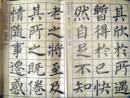 其欣於所遇
暫得於己快
然自足不知
老之將至及
其所之既倦
情隨事遷感